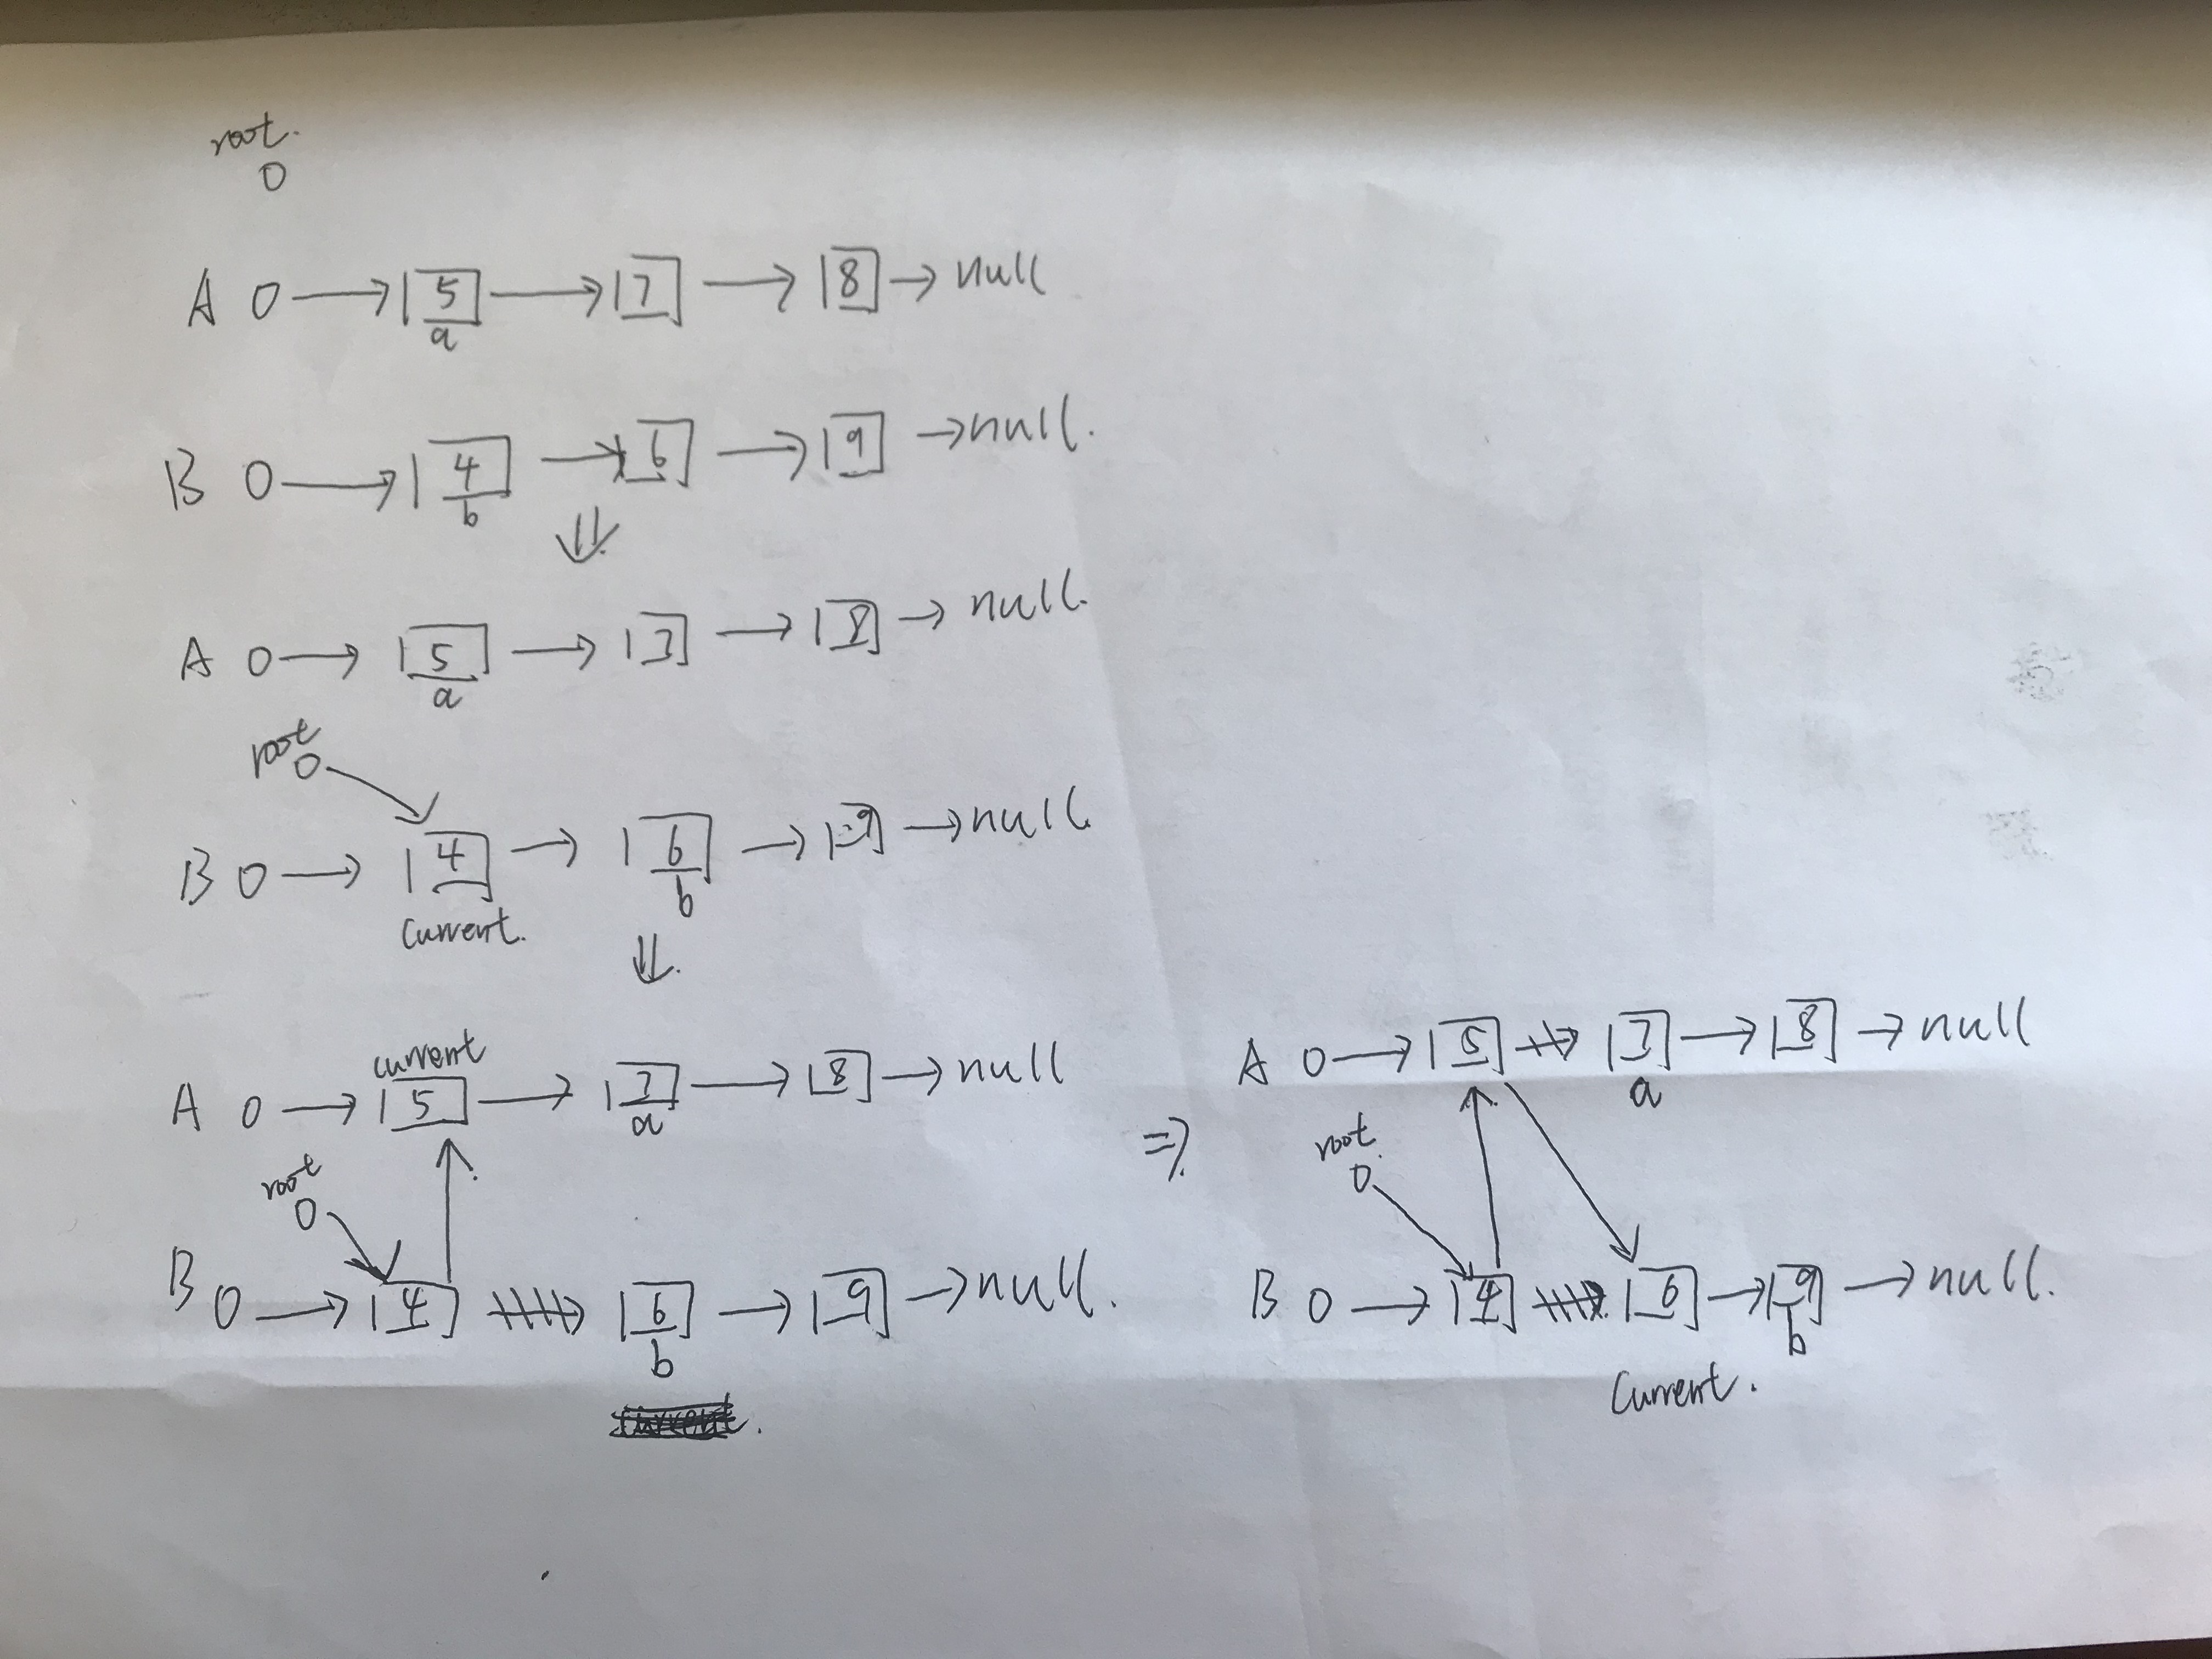 root.
0
A 0 → 5 → 7 → 8 → null
a
B 0 → 4 → 6 → 9 → null.
b
⇓
A 0 → 5 → 7 → 8 → null.
a
root
0
B 0 → 4 → 6 → 9 → null.
current. b
⇓
current
A 0 → 5 → 7 → 8 → null
a
root
0
B 0 → 4 → 6 → 9 → null.
b
⇒
A 0 → 5 → 7 → 8 → null
a
root.
0
B 0 → 4 → 6 → 9 → null.
b
Current.